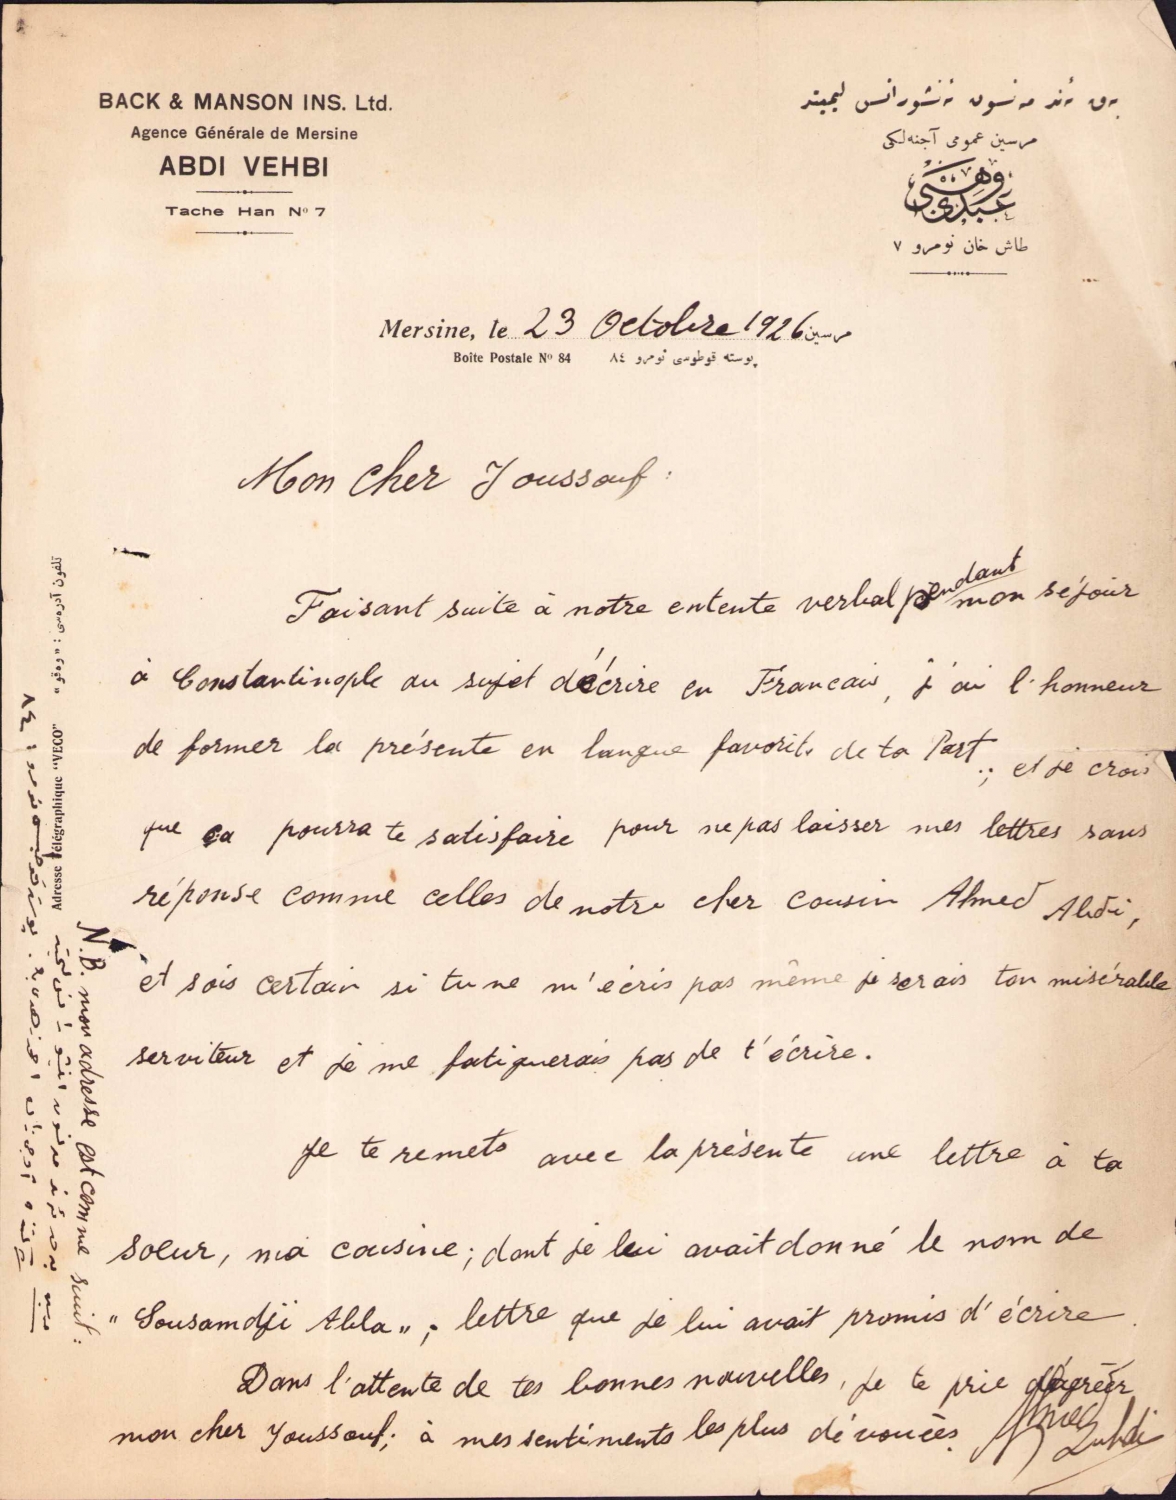 BACK & MANSON INS. Ltd.
Agence Générale de Mersine
ABDI VEHBI
Tache Han Nº 7
به‌ق ئه‌ند مه‌نسون ئه‌نشورانس ليميتد
مرسين عمومى آجنه‌لكى
عبدى وهبى
طاش خان نومرو ٧
Mersine, le 23 Octobre 1926 مرسين
Boîte Postale Nº 84 پوسته قوطوسى نومرو ٨٤
Mon cher Youssouf:
Faisant suite à notre entente verbal pendant mon séjour
à Constantinople au sujet d'écrire en Francais, j'ai l'honneur
de former la présente en langue favorite de ta Part.; et je crois
que ça pourra te satisfaire pour ne pas laisser mes lettres sans
réponse comme celles de notre cher cousin Ahmed Abdi,
et sois certain si tu ne m'écris pas même je serais ton misérable
serviteur et je me fatiguerais pas de t'écrire.
Je te remets avec la présente une lettre à ta
soeur, ma cousine; dont je lui avait donné le nom de
"Sousamdji Abla"; lettre que je lui avait promis d'écrire.
Dans l'attente de tes bonnes nouvelles, je te prie d'agréer
mon cher Youssouf; à mes sentiments les plus dévouées.
Zuhdi
Adresse télégraphique "VECO" تلغراف آدرسى :
N.B. mon adresse est comme suit: